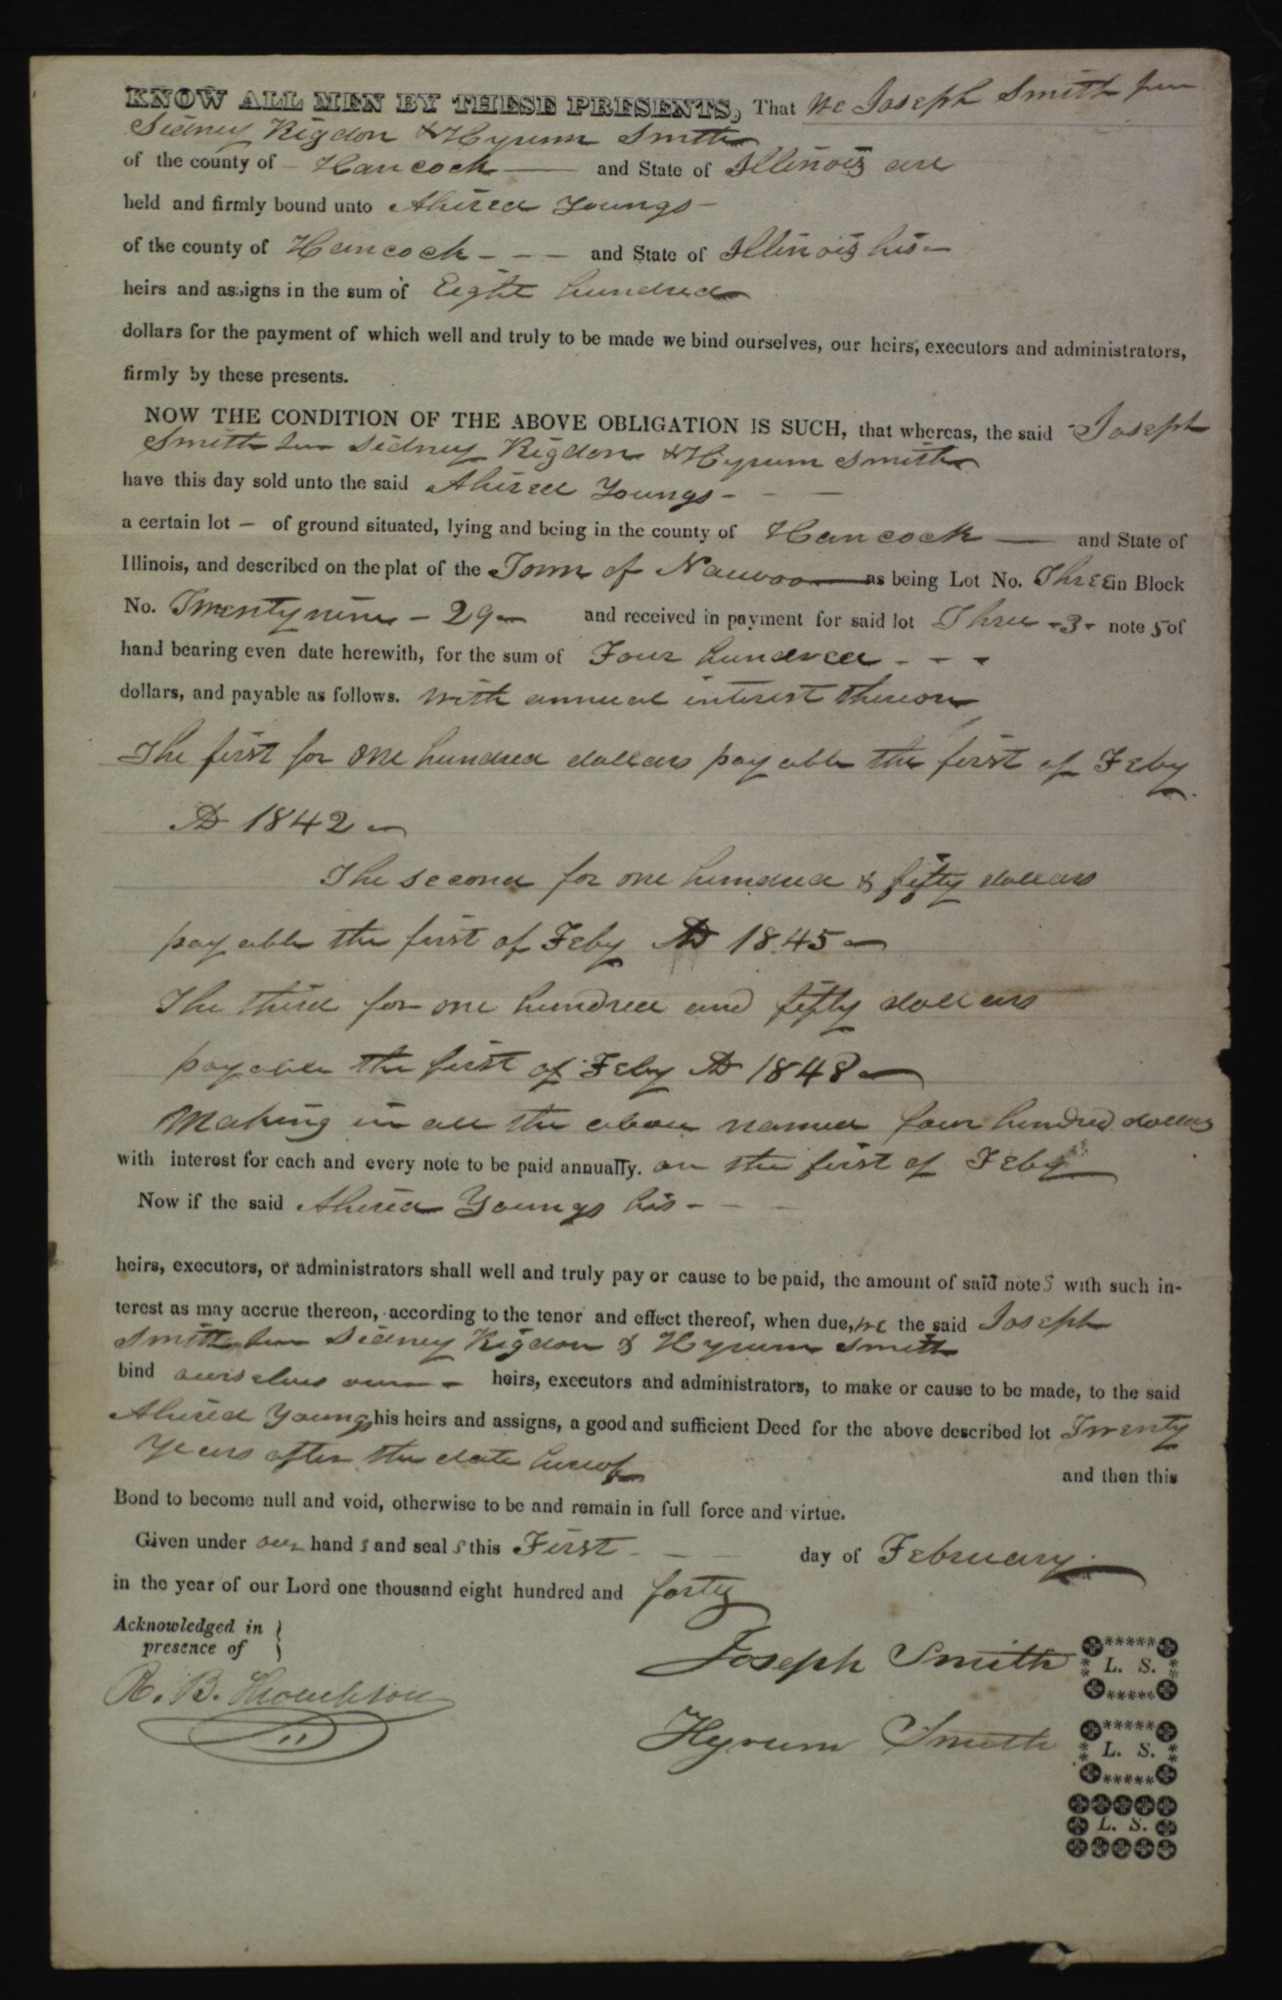 KNOW ALL MEN BY THESE PRESENTS, That We Joseph Smith Jun
Sidney Rigdon & Hyrum Smith
of the county of Hancock — and State of Illinois are
held and firmly bound unto Ahired Youngs -
of the county of Hancock - - - and State of Illinois his -
heirs and assigns in the sum of Eight hundred
dollars for the payment of which well and truly to be made we bind ourselves, our heirs, executors and administrators,
firmly by these presents.
NOW THE CONDITION OF THE ABOVE OBLIGATION IS SUCH, that whereas, the said Joseph
Smith Jun Sidney Rigdon & Hyrum Smith
have this day sold unto the said Ahired Youngs - - -
a certain lot — of ground situated, lying and being in the county of Hancock — and State of
Illinois, and described on the plat of the Town of Nauvoo — as being Lot No. Three in Block
No. Twenty nine - 29 - and received in payment for said lot Three - 3 - note s of
hand bearing even date herewith, for the sum of Four hundred - - -
dollars, and payable as follows. With annual interest thereon
The first for one hundred dollars payable the first of Feby
AD 1842 -
The second for one hundred & fifty dollars
payable the first of Feby AD 1845 -
The third for one hundred and fifty dollars
payable the first of Feby AD 1848 -
Making in all the above named four hundred dollars
with interest for each and every note to be paid annually. on the first of Feby
Now if the said Ahired Youngs his - - -
heirs, executors, or administrators shall well and truly pay or cause to be paid, the amount of said note s with such in-
terest as may accrue thereon, according to the tenor and effect thereof, when due, we the said Joseph
Smith Jun Sidney Rigdon & Hyrum Smith
bind ourselves our - heirs, executors and administrators, to make or cause to be made, to the said
Ahired Youngs his heirs and assigns, a good and sufficient Deed for the above described lot Twenty
years after the date hereof and then this
Bond to become null and void, otherwise to be and remain in full force and virtue.
Given under our hand s and seal s this First - - - day of February
in the year of our Lord one thousand eight hundred and forty
Acknowledged in
presence of
R. B. Thompson
Joseph Smith L. S.
Hyrum Smith L. S.
L. S.